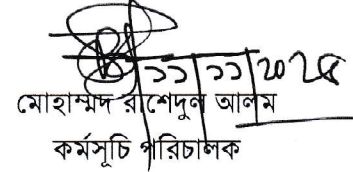 ১১/১১/২০২৪
মোহাম্মদ রাশেদুল আলম
কর্মসূচি পরিচালক